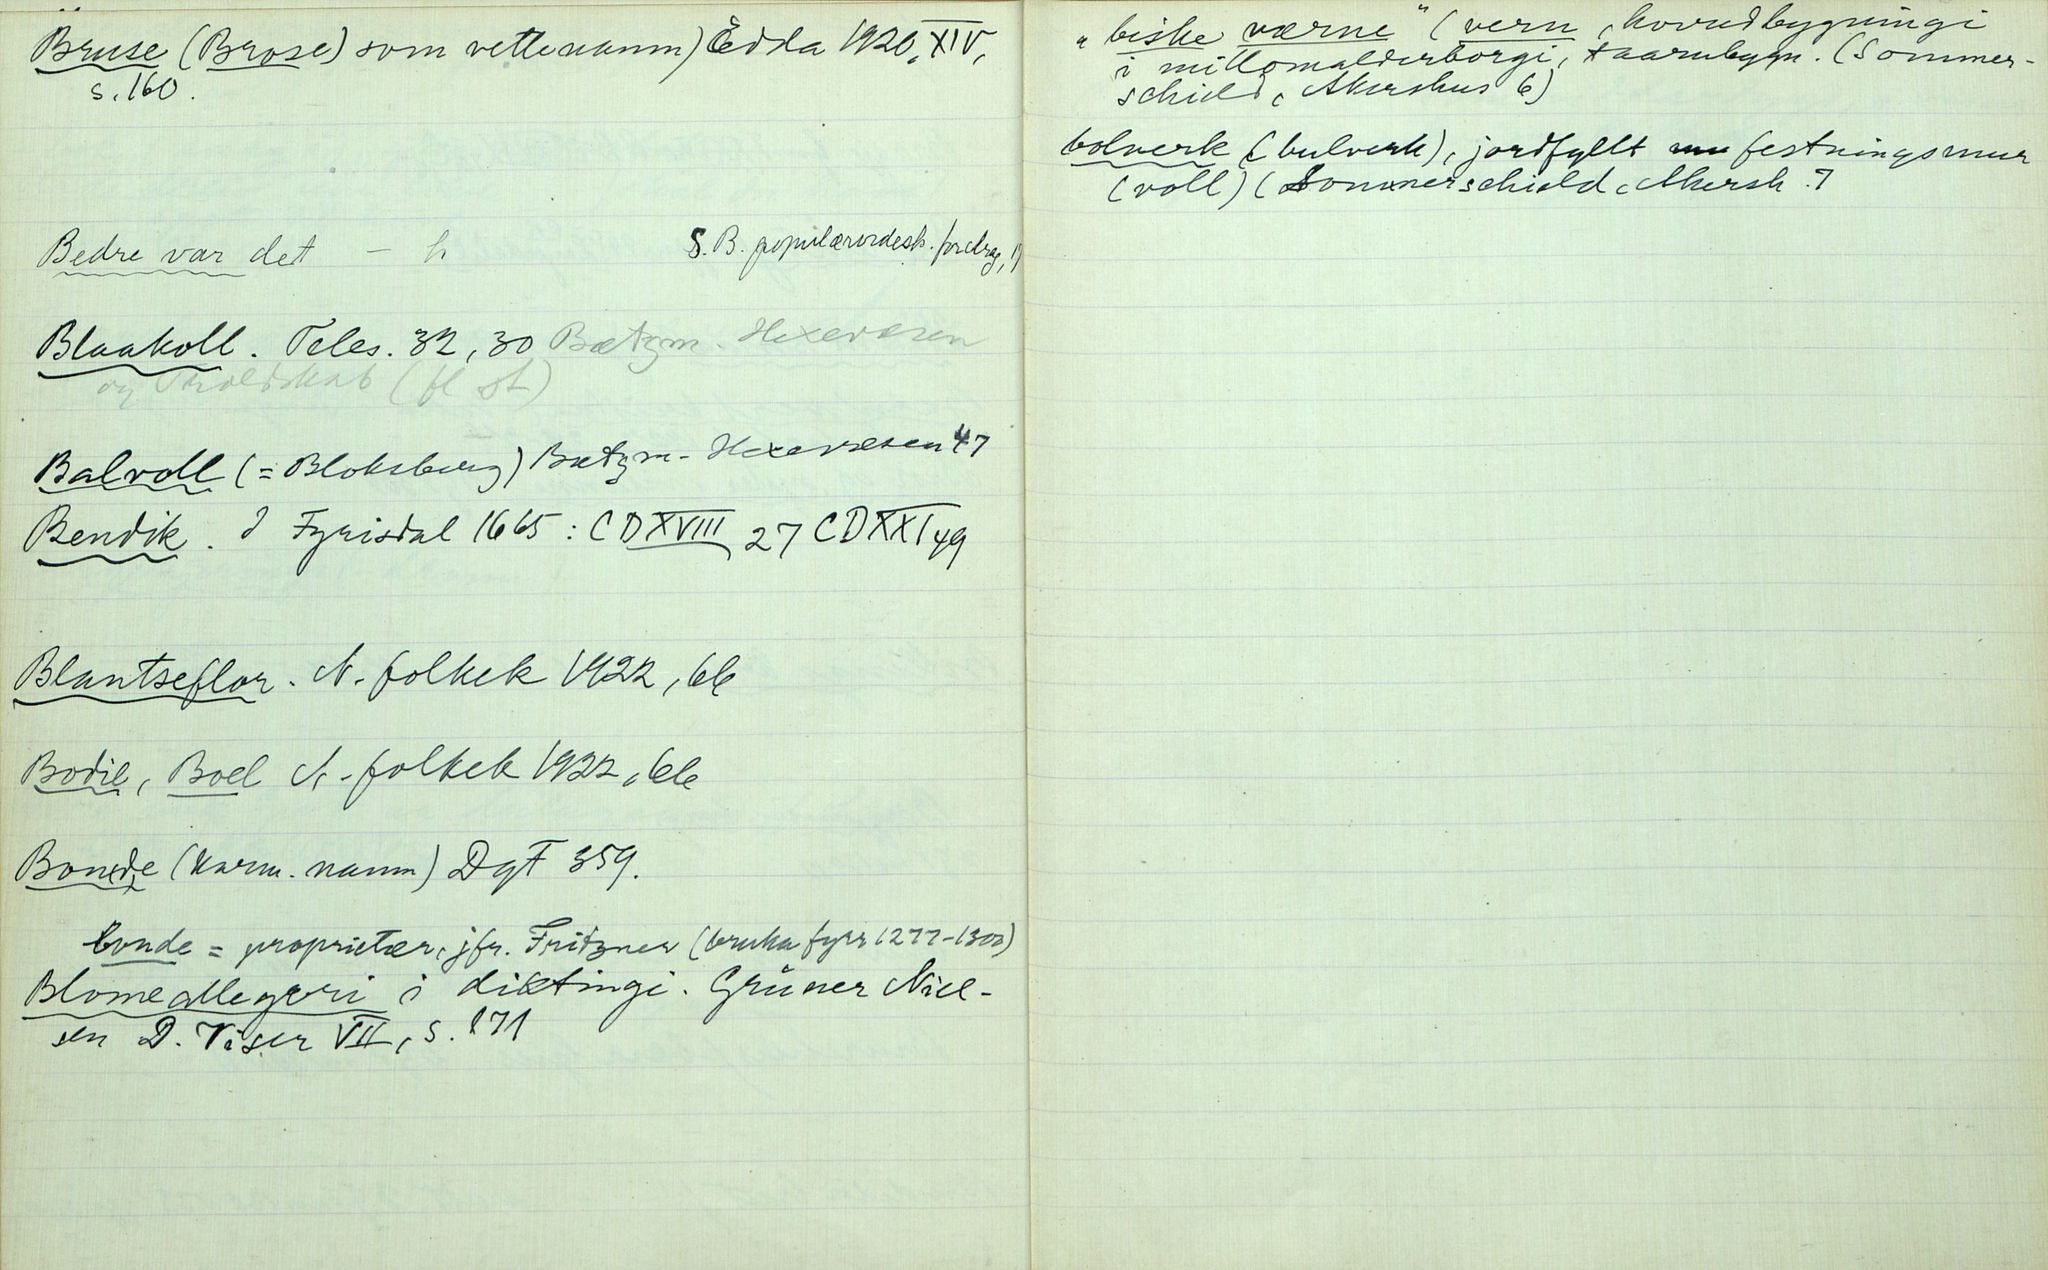 Bruse (Brose) som vettenamn) Edda 1920, XIV,
s. 160.
Bedre var det - h S. B. populærvidesk. foredrag,
Blaakoll. Teles. 32, 30 Bætzm. Hexevæsen
og Troldskab (fl st)
Balvoll (= Bloksberg) Bætzm - Hexevæsen 47
Bendik. I Fyrisdal 1665: CD XVIII 27 CD XXI 49
Blantseflor. N. folkek 1922, 66
Bodil, Boel N. folkek 1922, 66
Bonde (karm. namn) DgF 359.
bonde = proprietær, jfr. Fritzner (bruka fyrr 1277-1300)
Blomeallegori i diktingi. Grüner Niel-
sen D. Viser VII, s. 171
„biske værne" (vern, hovudbygningi
i millomalderborgi, taarnbygn. (Sommer-
schield, Akershus 6)
bolverk (bulverk), jordfyllt festningsmur
(voll) (Sommerschield, Akersh. 7